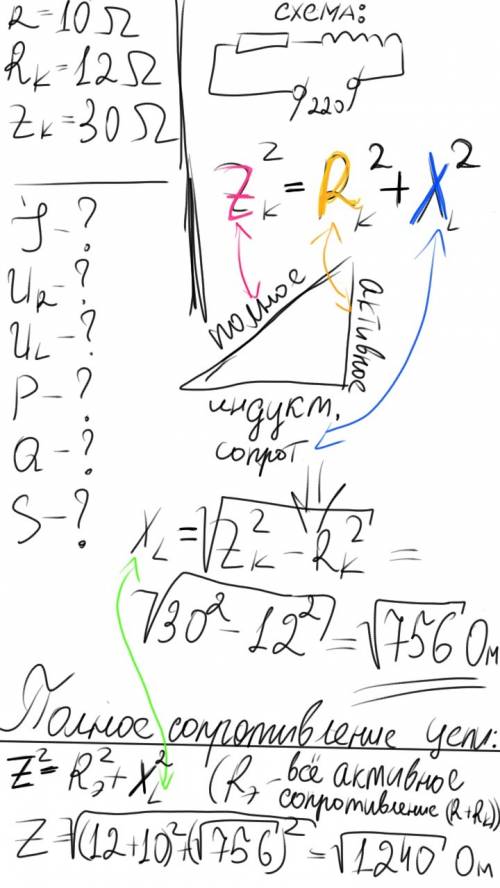 R=10Ω
Rк=12Ω
Zк=30Ω
J-?
UR-?
UL-?
P-?
Q-?
S-?
СХЕМА:
220
Zк²=Rк²+XL²
полное
активное
индукт.
сопрот
XL=√Zк²-Rк² =
√30²-12²=√756 Ом
Полное сопротивление цепи:
Z²=RЭ²+XL² (RЭ-всё активное
сопротивление (R+RL))
Z=√(12+10)²+(√756)²=√1240 Ом